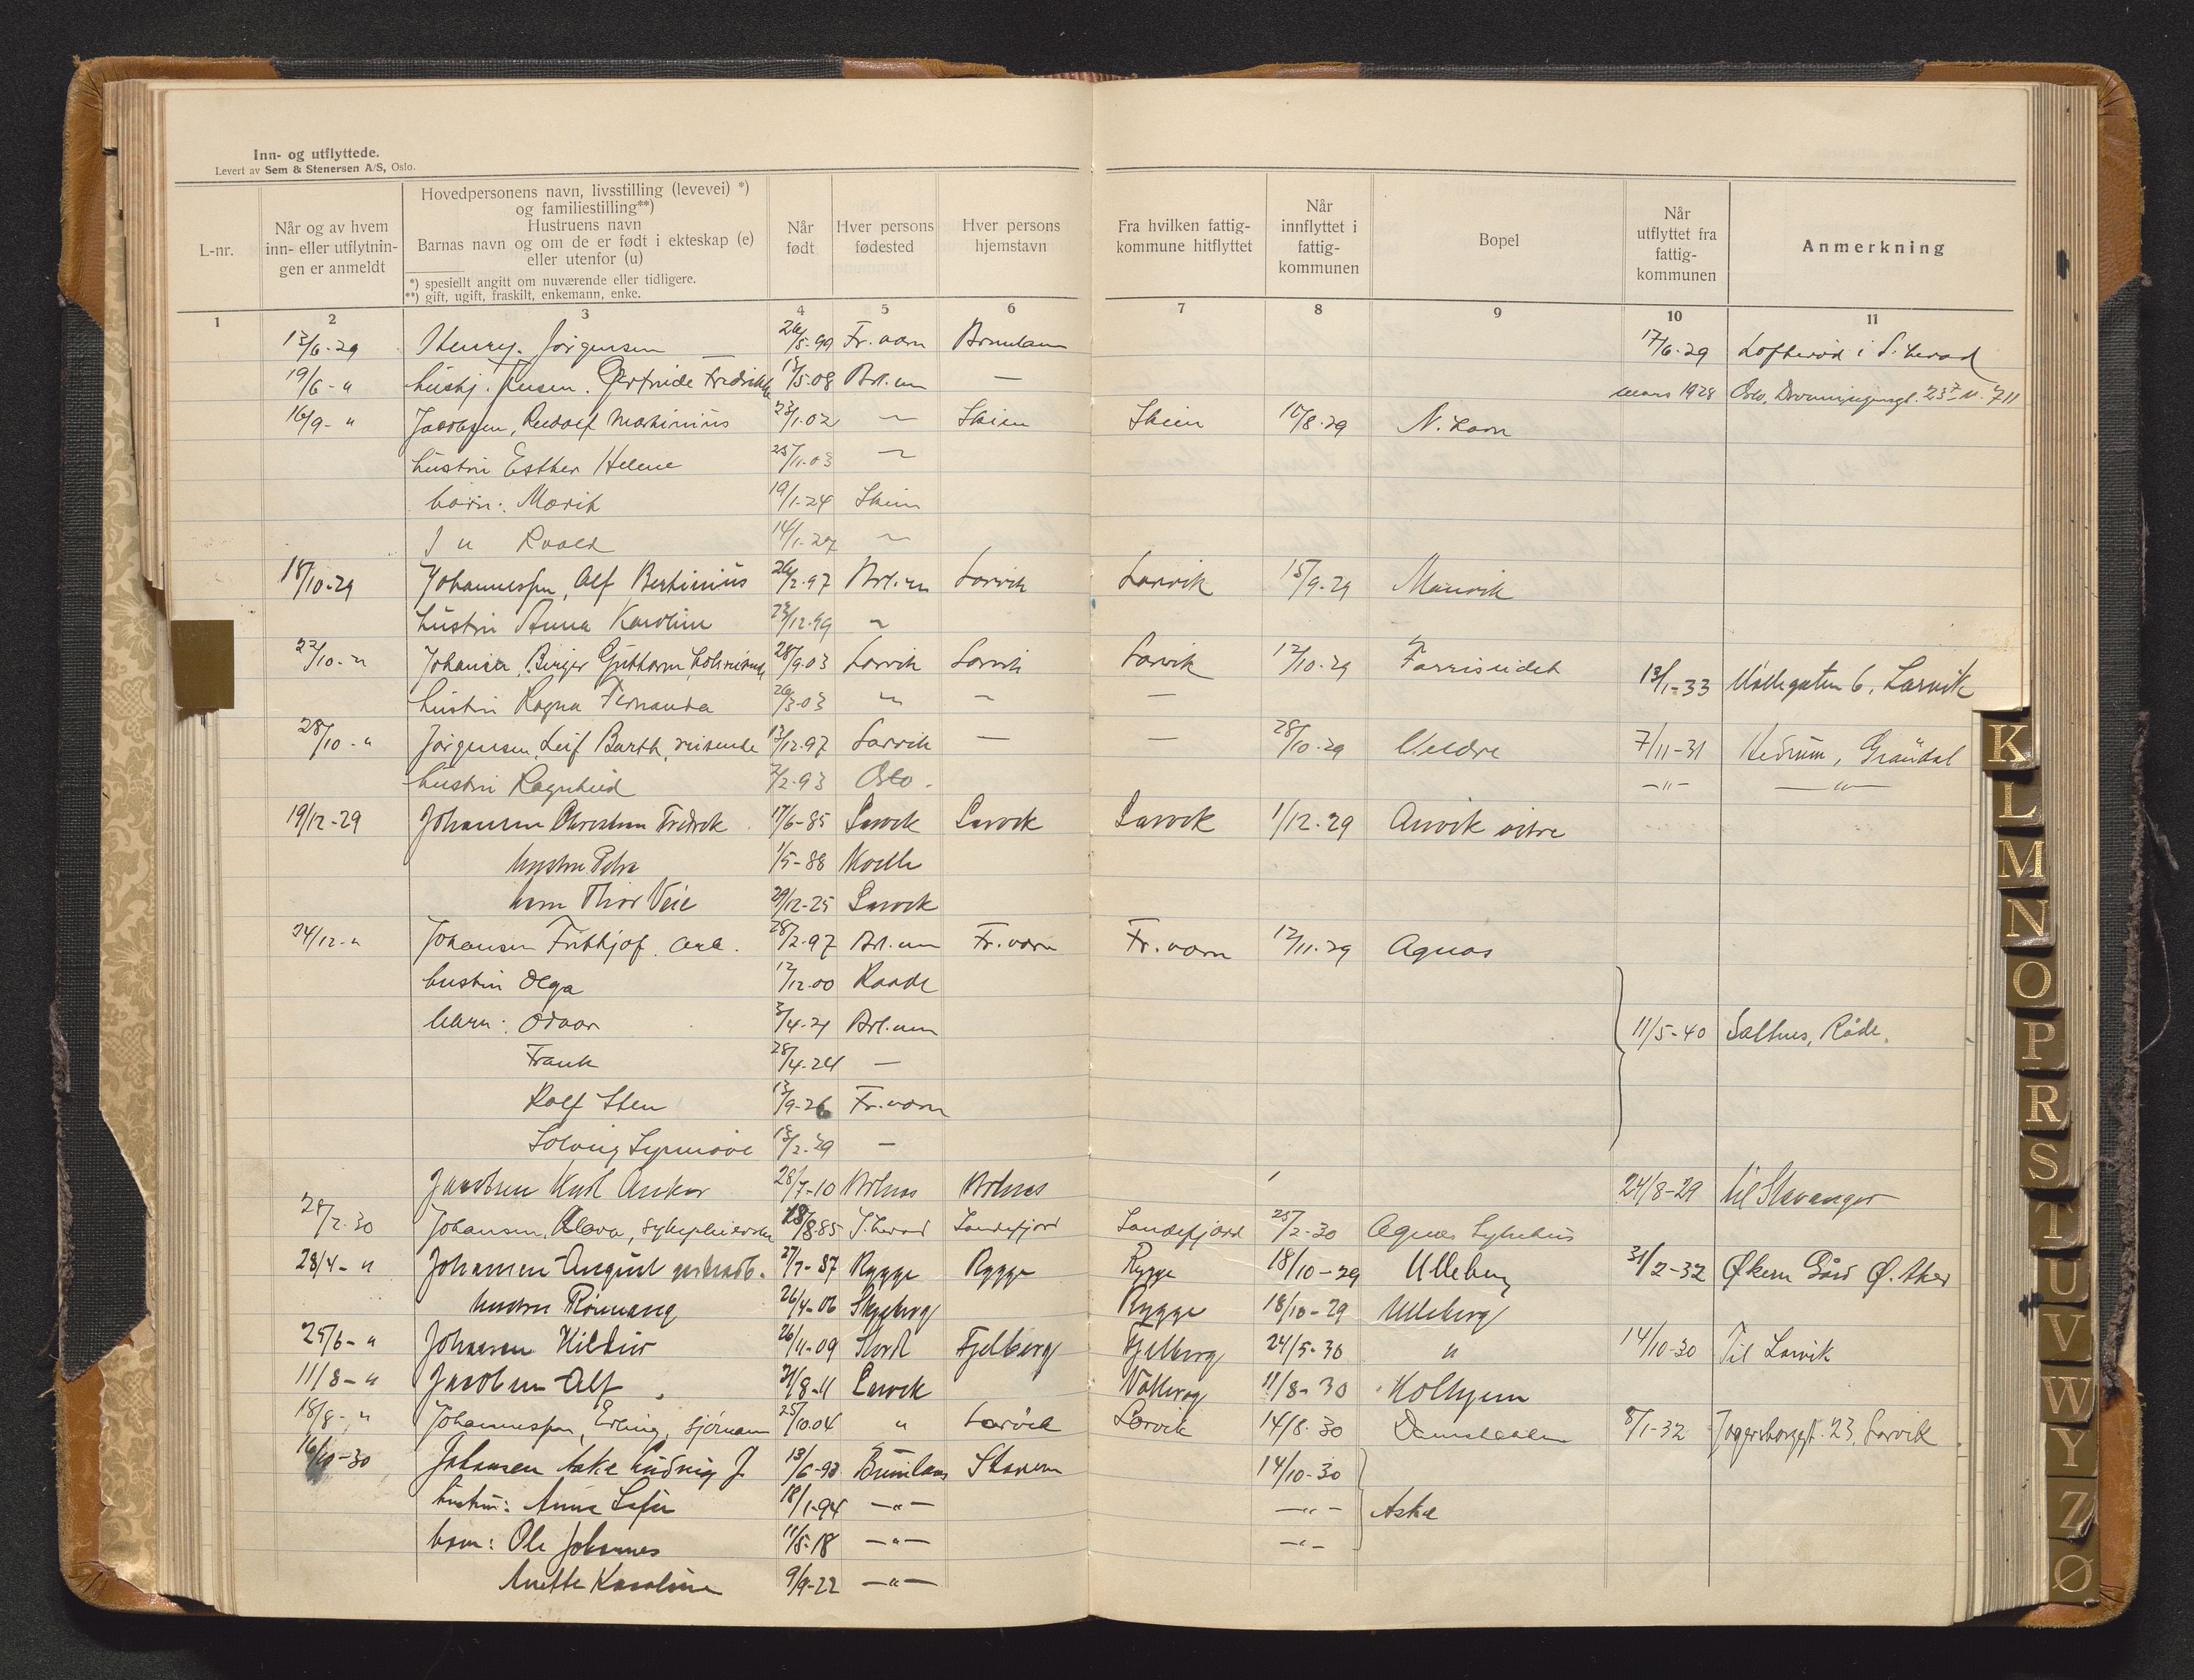 Inn- og utflyttede.
Levert av Sem & Stenersen A/S, Oslo.
L-nr.
Når og av hvem inn- eller utflytnin- gen er anmeldt
Hovedpersonens navn, livsstilling (levevei) *)
og familiestilling**)
Hustruens navn
Barnas navn og om de er født i ekteskap (e)
eller utenfor (u)
*) spesiellt angitt om nuværende eller tidligere.
**) gift, ugift, fraskilt, enkemann, enke.
Når født
Hver persons fødested
Hver persons hjemstavn
Fra hvilken fattig- kommune hitflyttet
Når innflyttet i fattig- kommunen
Bopel
Når utflyttet fra fattig- kommunen
Anmerkning
1 2 3 4 5 6 7 8 9 10 11
13/6-29 Henry Jørgensen 26/5-99 Fr.værn Brunlanes 17/6-29 i S. herad
19/6-" hushj. Jensen. Gertrude Fredrikke 13/5-08 — mars 1928 Oslo,
16/9-" Jacobsen, Rudolf Martinius 23/1-02 Skien Skien 10/8-29 N. Lavn
hustru Esther Helene 25/11-03
barn: Marit 19/1-24 Skien
Roald 14/1-27
18/10-29 Johannessen, Alf Bertinius 26/2-97 Larvik Larvik 15/9-29 Manvik
hustru Anna Karoline 23/12-99
22/10-" Johansen, Birger Guttorm 28/9-03 Larvik Larvik Larvik 12/10-29 Farriseidet 13/1-33 Møllegaten 6, Larvik
hustru Ragna Fernanda 26/3-03 — —
28/10-" Jørgensen, Leif Barth, reisende 13/12-97 Larvik — — 28/10-29 Veldre 7/11-31 Hedrum, Grandal
hustru Ragnhild 2/2-93 Oslo. —"— —"—
19/12-29 Johansen Christian Fredrik 17/6-85 Larvik Larvik Larvik 1/12-29 Anvik østre
hustru Petra 1/5-88
barn Thor Veie 29/12-25 Larvik
24/12-" Johansen Frithjof. arb. 28/2-97 Fr.værn Fr.værn 12/11-29 Agnes
hustru Olga 12/12-00 Raade
barn: Odvar 3/4-21
Frank 28/4-24 —
Rolf Sten 13/9-26 Fr.værn
Solveig Synnøve 13/2-29 —
11/5-40 Salthus, Råde.
Jacobsen Karl Anker 28/7-10 24/8-29 til Stavanger
28/2-30 Johansen, Klara, sykepleierske 18/8-85 S.herad Sandefjord Sandefjord 25/2-30 Agnes Sykehus
28/4-" Johansen August 27/7-87 Rygge Rygge Rygge 18/10-29 Ulleberg 31/2-32 Økern Gård Ø. Aker
hustru 26/4-06 Skjeberg Rygge 18/10-29 Ulleberg
25/6-" Johansen Hildur 26/11-09 Stord Fjelberg Fjelberg 24/5-30 " 14/10-30 Til Larvik
11/8-" Jacobsen Alf 31/8-11 Larvik 11/8-30
18/8-" Johannessen, Erling, sjømann 25/10-04 " Larvik Larvik 14/8-30 8/1-32 23, Larvik
16/10-30 Johansen Aske Ludvig J. 13/6-93 Brunlanes Stavern 14/10-30
hustru: Anna Sofie 18/1-94 —"— —"— Aske
barn: Ole Johannes 11/5-18 —"— —"—
Anette Karoline 9/9-22 —"—
K
L
M
N
O
P
R
S
T
U
V
W
Y
Z
Ø